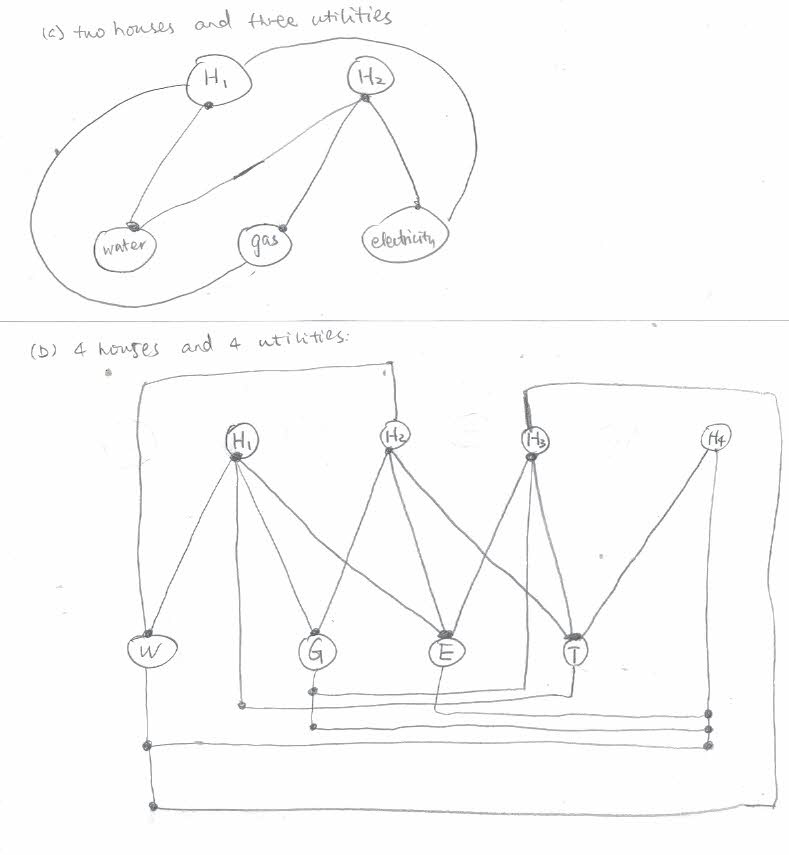 (c) two houses and three utilities
H1 H2
water gas electricity
(D) 4 houses and 4 utilities:
H1 H2 H3 H4
W G E T